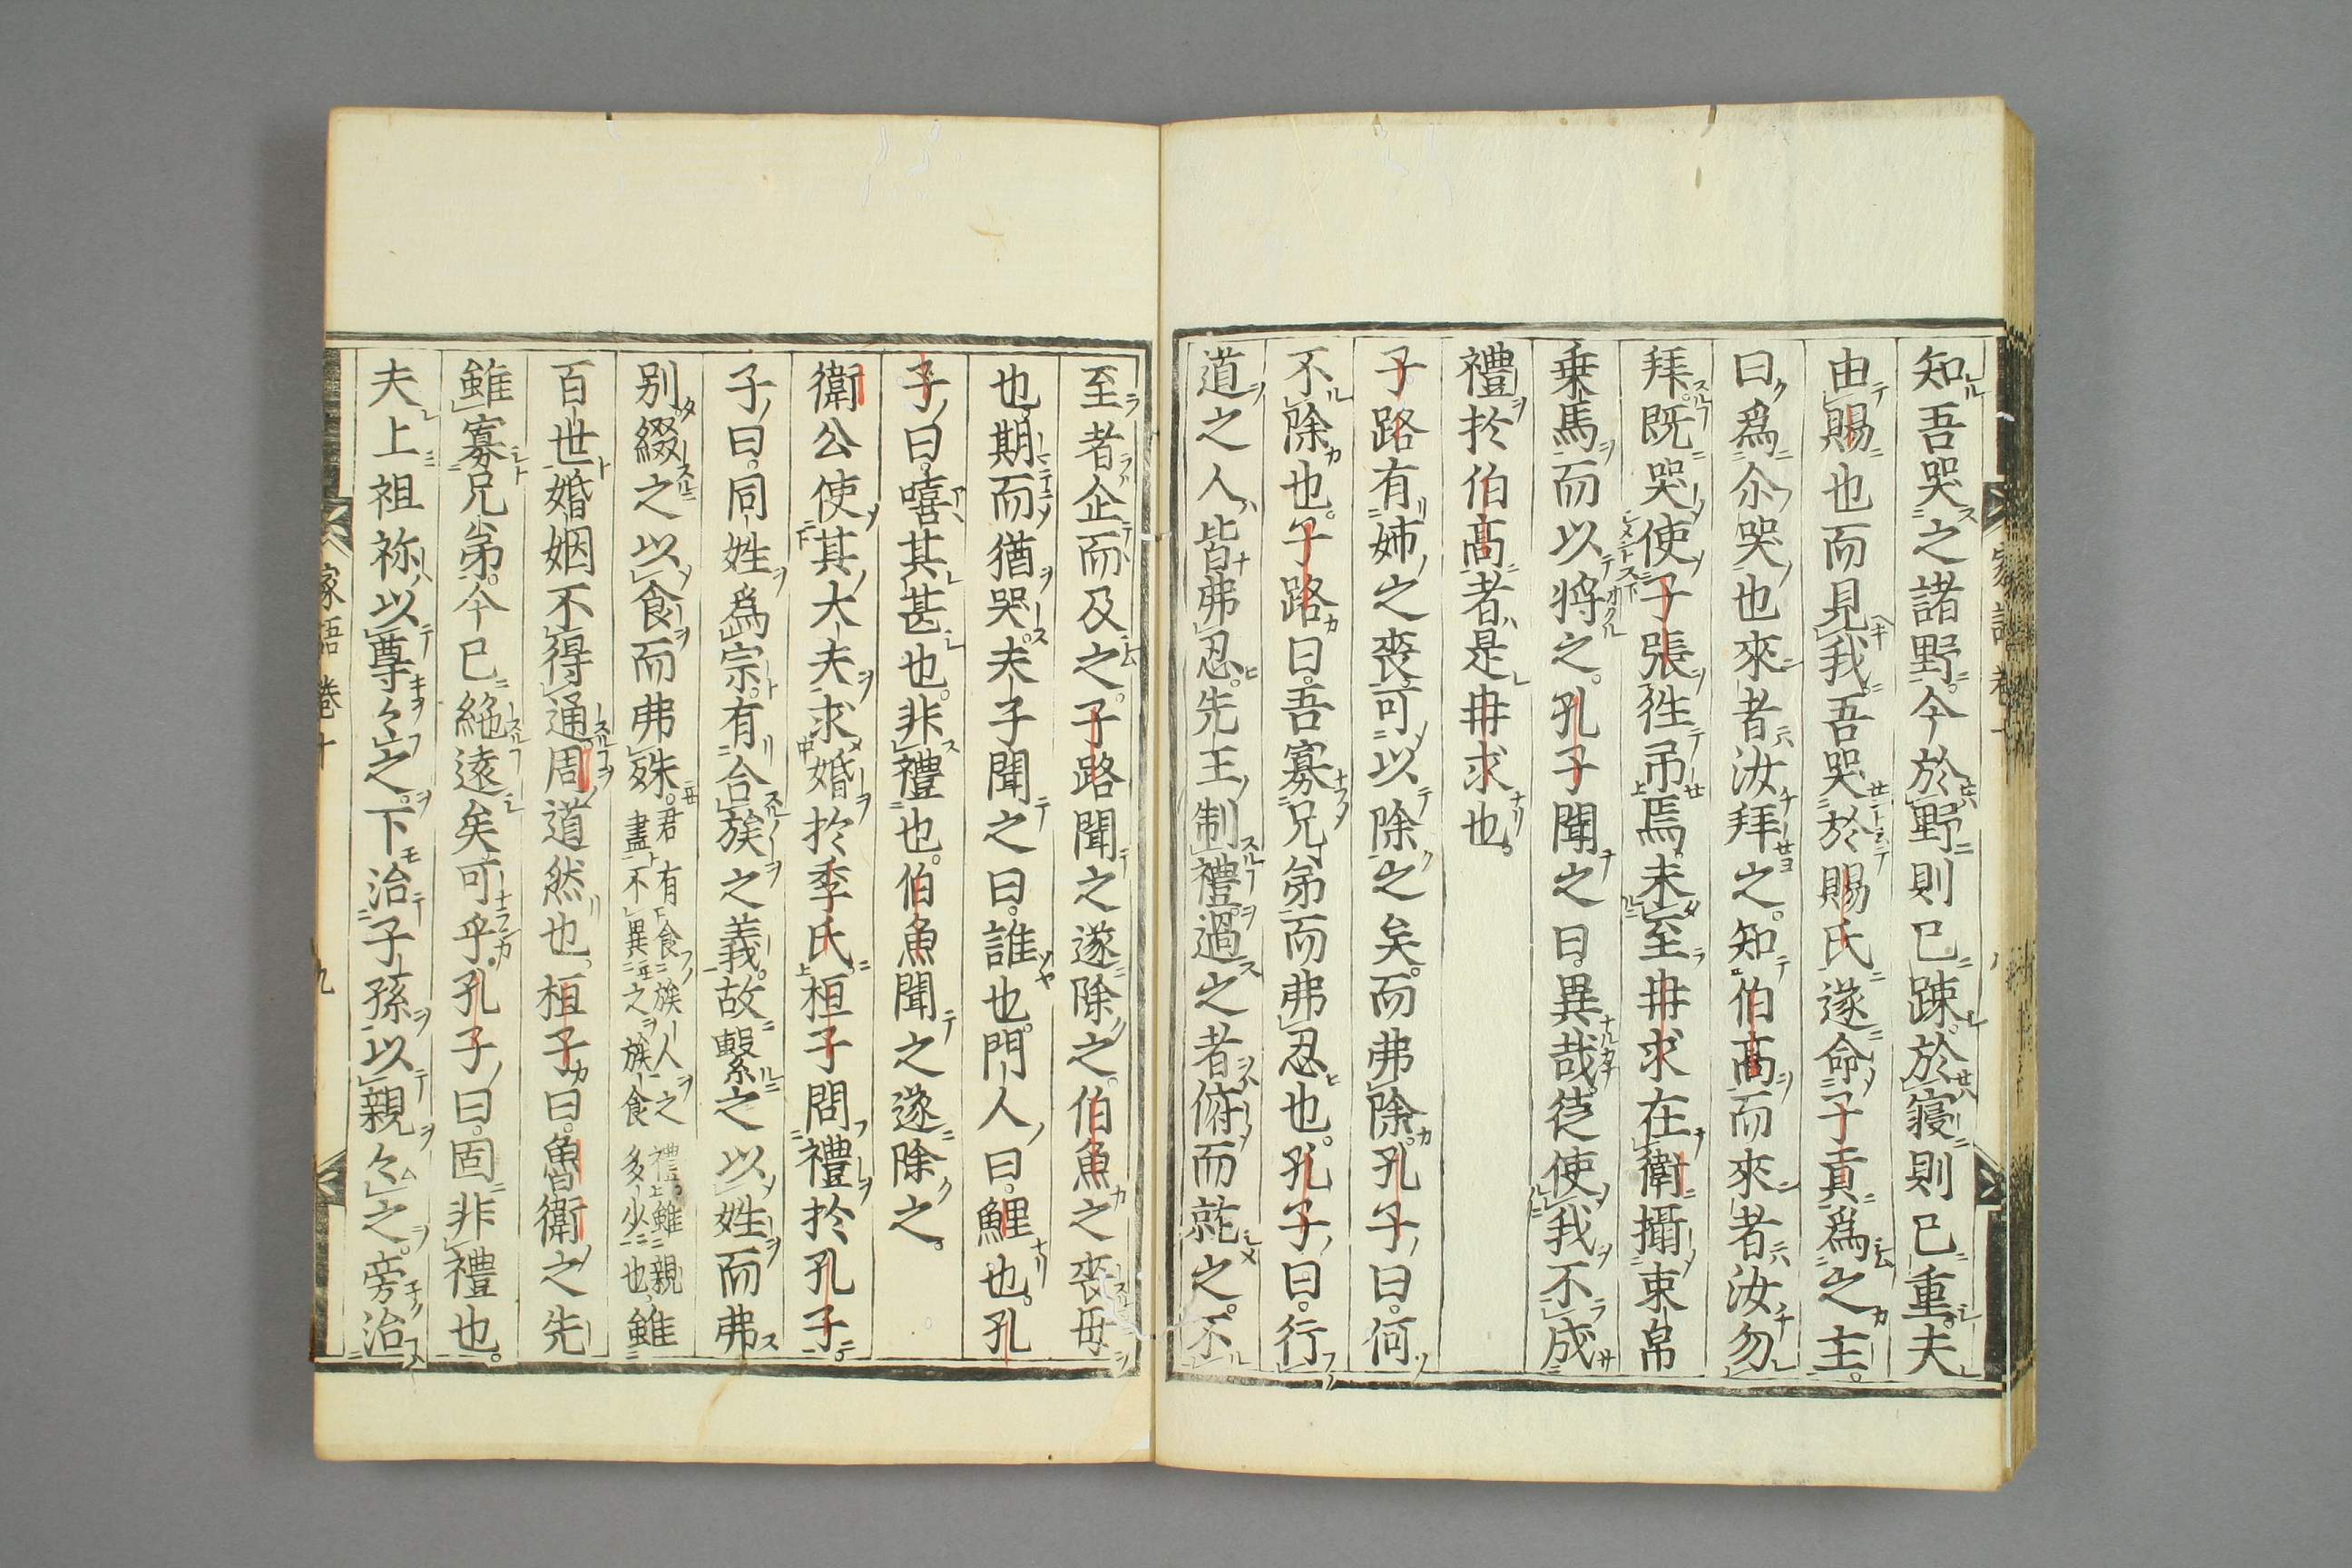 知吾哭之諸野。今於野則已疎。於寝則已重。夫
由賜也而見我。吾哭於賜氏遂命子貢爲之主。
曰爲尒哭也來者汝拜之。知伯髙而來者汝勿
拜。既哭使子張徃弔焉。未至冉求在衛攝束帛
乗馬而以将之。孔子聞之曰。異哉。徒使我不成
禮扵伯髙者是冉求也。
子路有姉之喪。可以除之矣。而弗除。孔子曰。何
不除也。子路曰。吾寡兄弟而弗忍也。孔子曰。行
道之人皆弗忍。先王制禮。過之者俯而就之。不
至者企而及之。子路聞之遂除之。伯魚之喪母
也。期而猶哭。夫子聞之曰。誰也。門人曰。鯉也。孔
子曰。嘻其甚也。非禮也。伯魚聞之遂除之。
衛公使其大夫求婚扵季氏桓子問禮扵孔子。
子曰。同姓爲宗。有合族之義。故繫之以姓而弗
別。綴之以食而弗殊。君有食族人之禮。雖親盡不異之族食多少也。雖
百世婚姻不得通周道然也。桓子曰。魯衛之先
雖寡兄弟。今已絶遠矣可乎。孔子曰。固非禮也。
夫上祖祢以尊々之。下治子孫以親々之。旁治
家語巻十 九